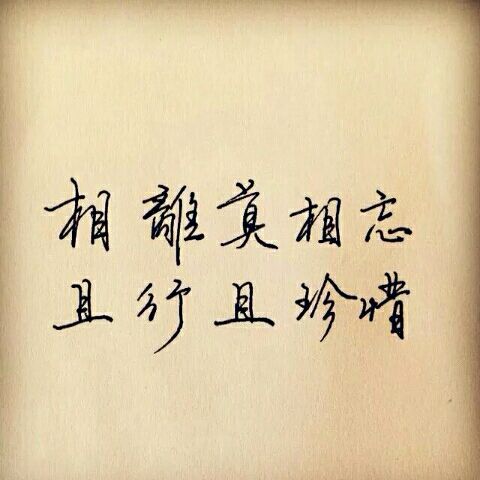 相離莫相忘
且行且珍惜